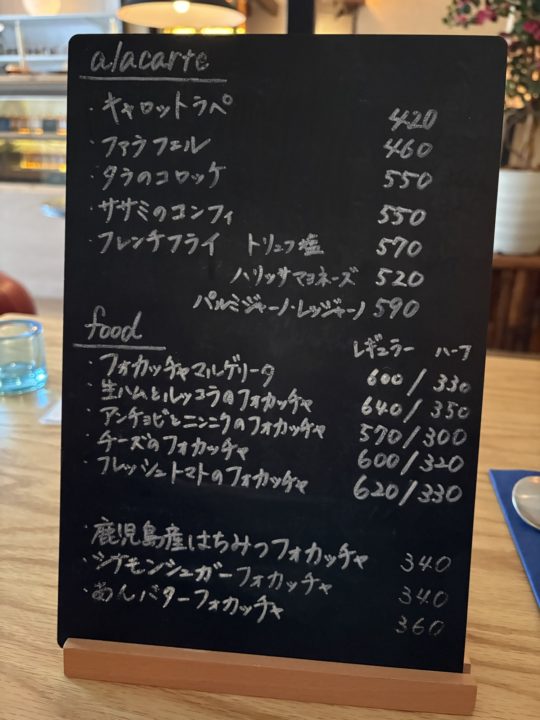 alacarte
・キャロットラペ 420
・ファラフェル 460
・タラのコロッケ 550
・ササミのコンフィ 550
・フレンチフライ トリュフ塩 570
ハリッサマヨネーズ 520
パルミジャーノ・レッジャーノ 590
food
レギュラー ハーフ
・フォカッチャマルゲリータ 600/330
・生ハムとルッコラのフォカッチャ 640/350
・アンチョビとニンニクのフォカッチャ 570/300
・チーズのフォカッチャ 600/320
・フレッシュトマトのフォカッチャ 620/330
・鹿児島産はちみつフォカッチャ 340
・シナモンシュガーフォカッチャ 340
・あんバターフォカッチャ 360